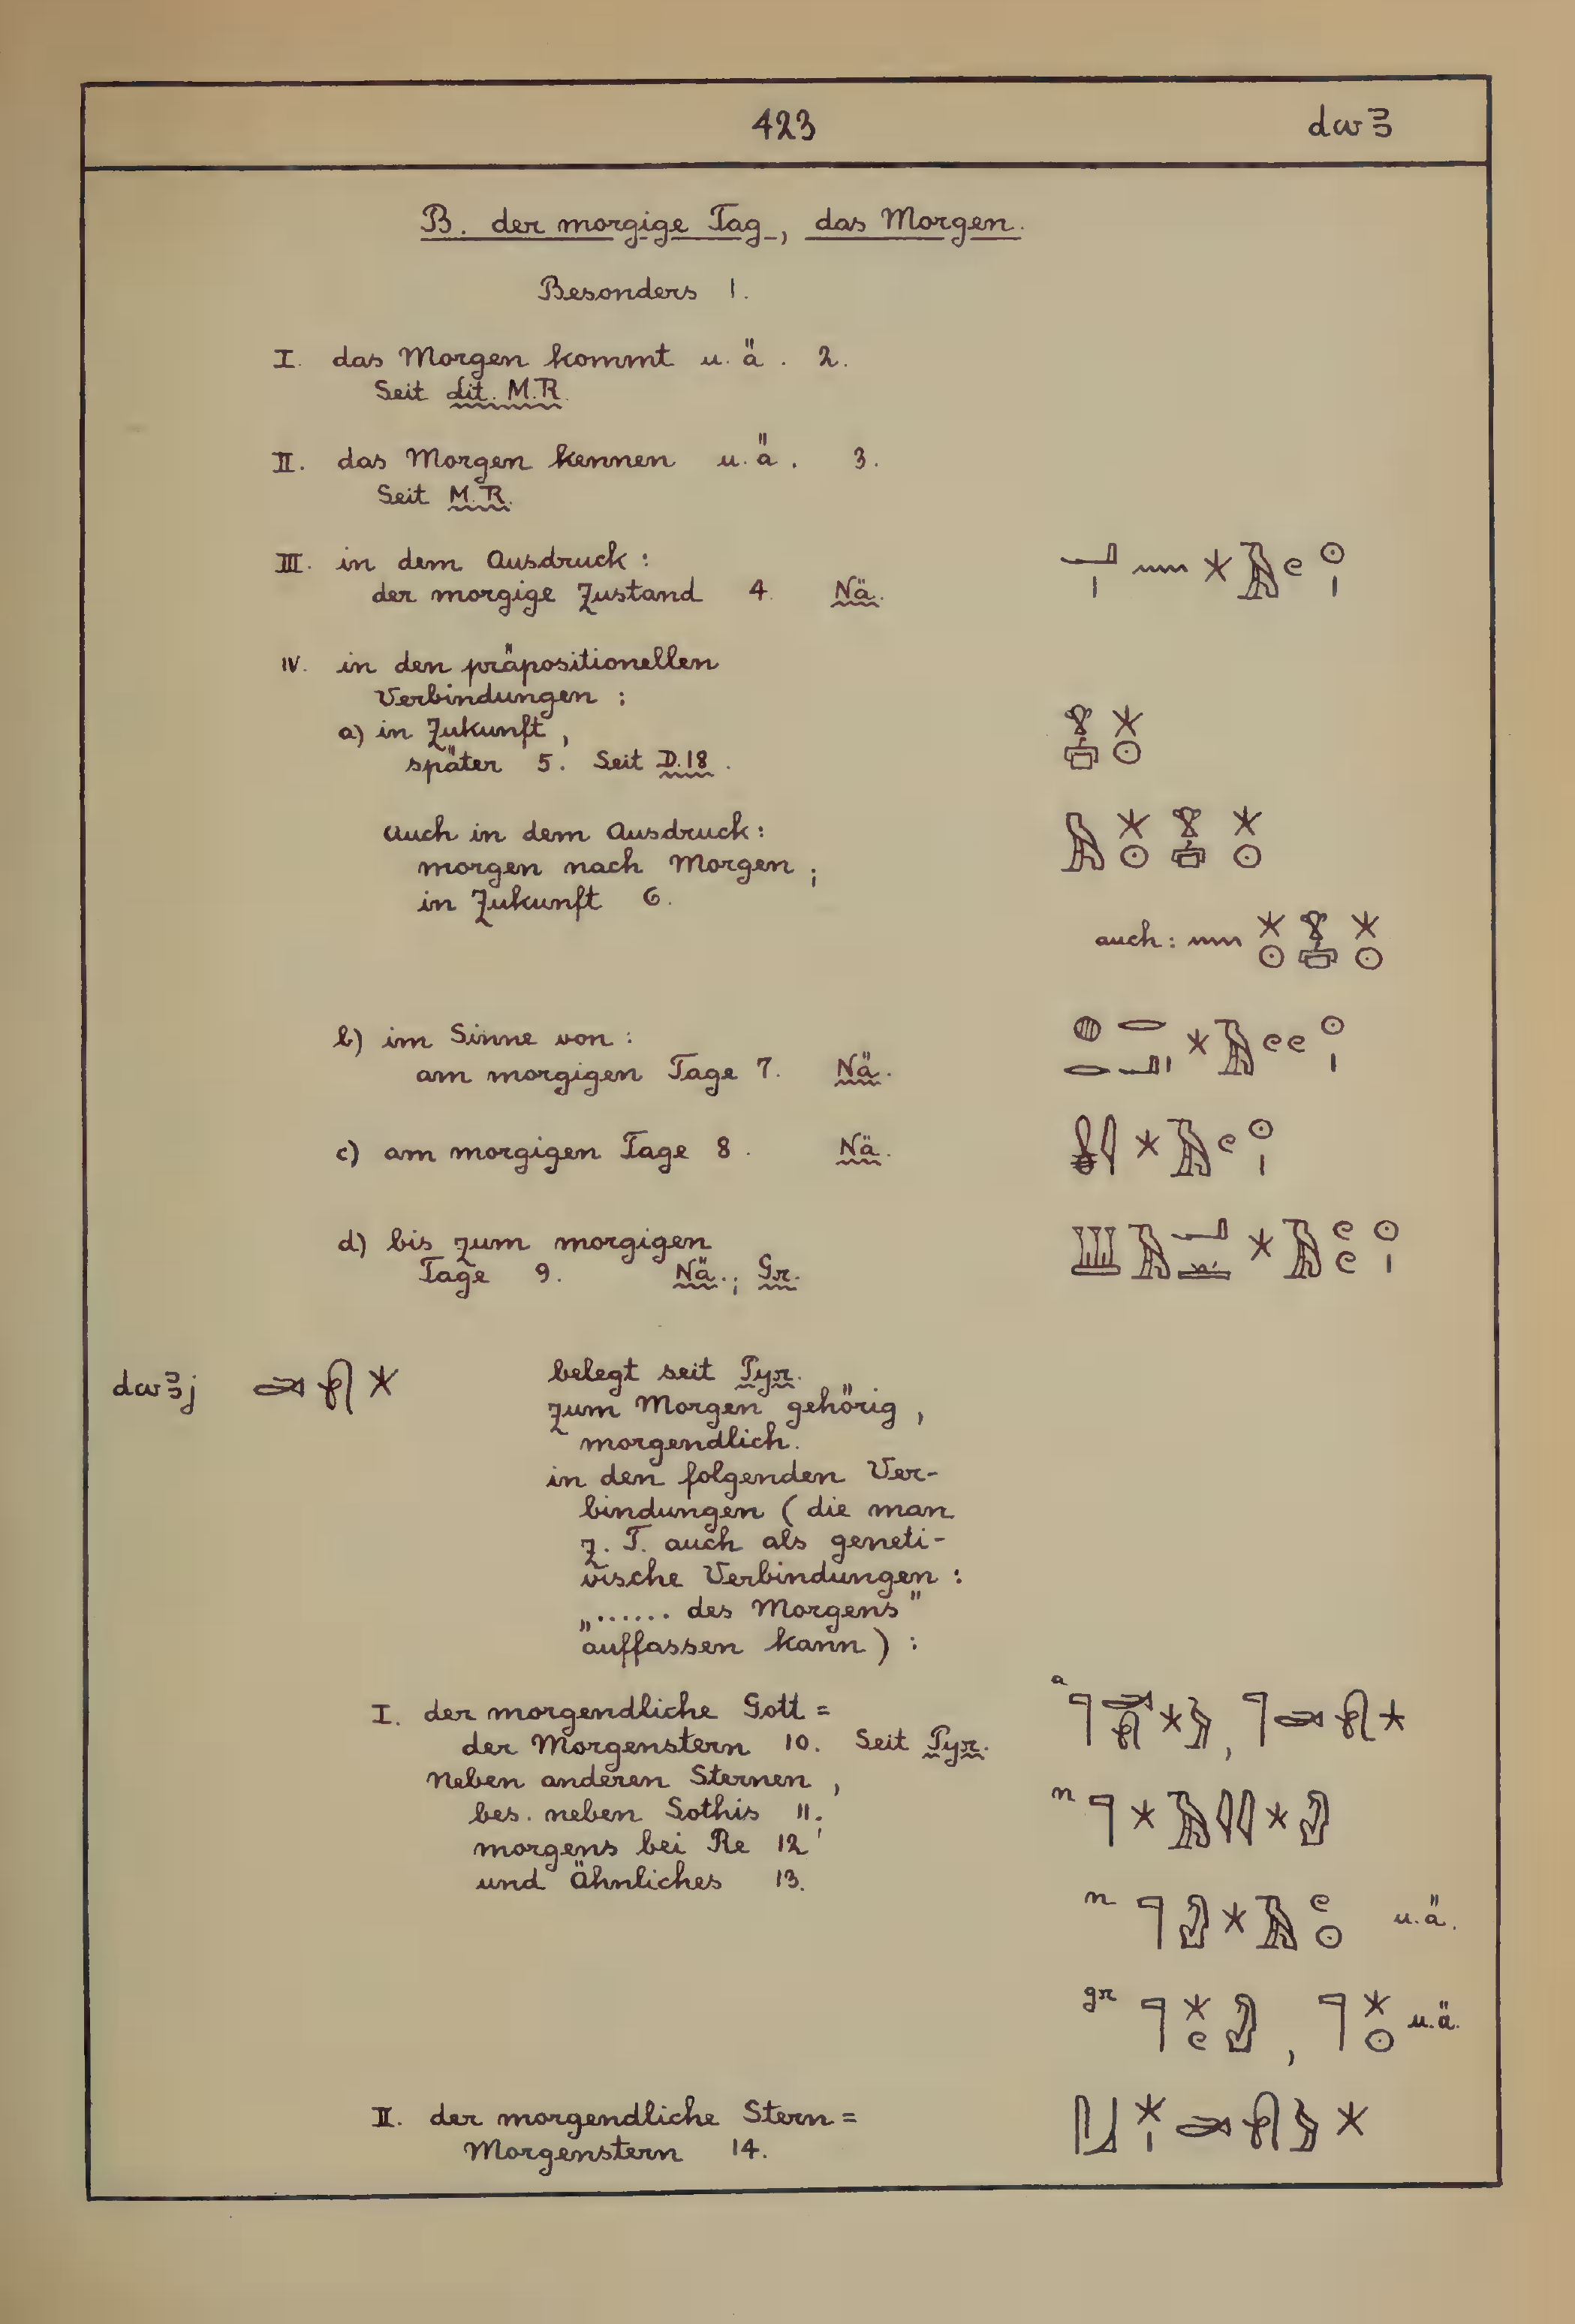 423 dwꜣ
B. der morgige Tag, das Morgen.
Besonders 1.
I. das Morgen kommt u. ä. 2.
Seit Lit. M.R.
II. das Morgen kennen u. ä. 3.
Seit M.R.
III. in dem Ausdruck:
der morgige Zustand 4. Nä.
IV. in den präpositionellen
Verbindungen:
a) in Zukunft,
später 5. Seit D.18.
auch in dem Ausdruck:
morgen nach Morgen;
in Zukunft 6.
auch:
b) im Sinne von:
am morgigen Tage 7. Nä.
c) am morgigen Tage 8. Nä.
d) bis zum morgigen
Tage 9. Nä.; Gr.
dwꜣj belegt seit Pyr.
zum Morgen gehörig,
morgendlich.
in den folgenden Ver-
bindungen (die man
z. T. auch als geneti-
vische Verbindungen:
„...... des Morgens"
auffassen kann):
I. der morgendliche Gott = a
der Morgenstern 10. Seit Pyr.
neben anderen Sternen,
bes. neben Sothis 11; n
morgens bei Re 12
und Ähnliches 13.
n u. ä.
gr , u. ä.
II. der morgendliche Stern =
Morgenstern 14.